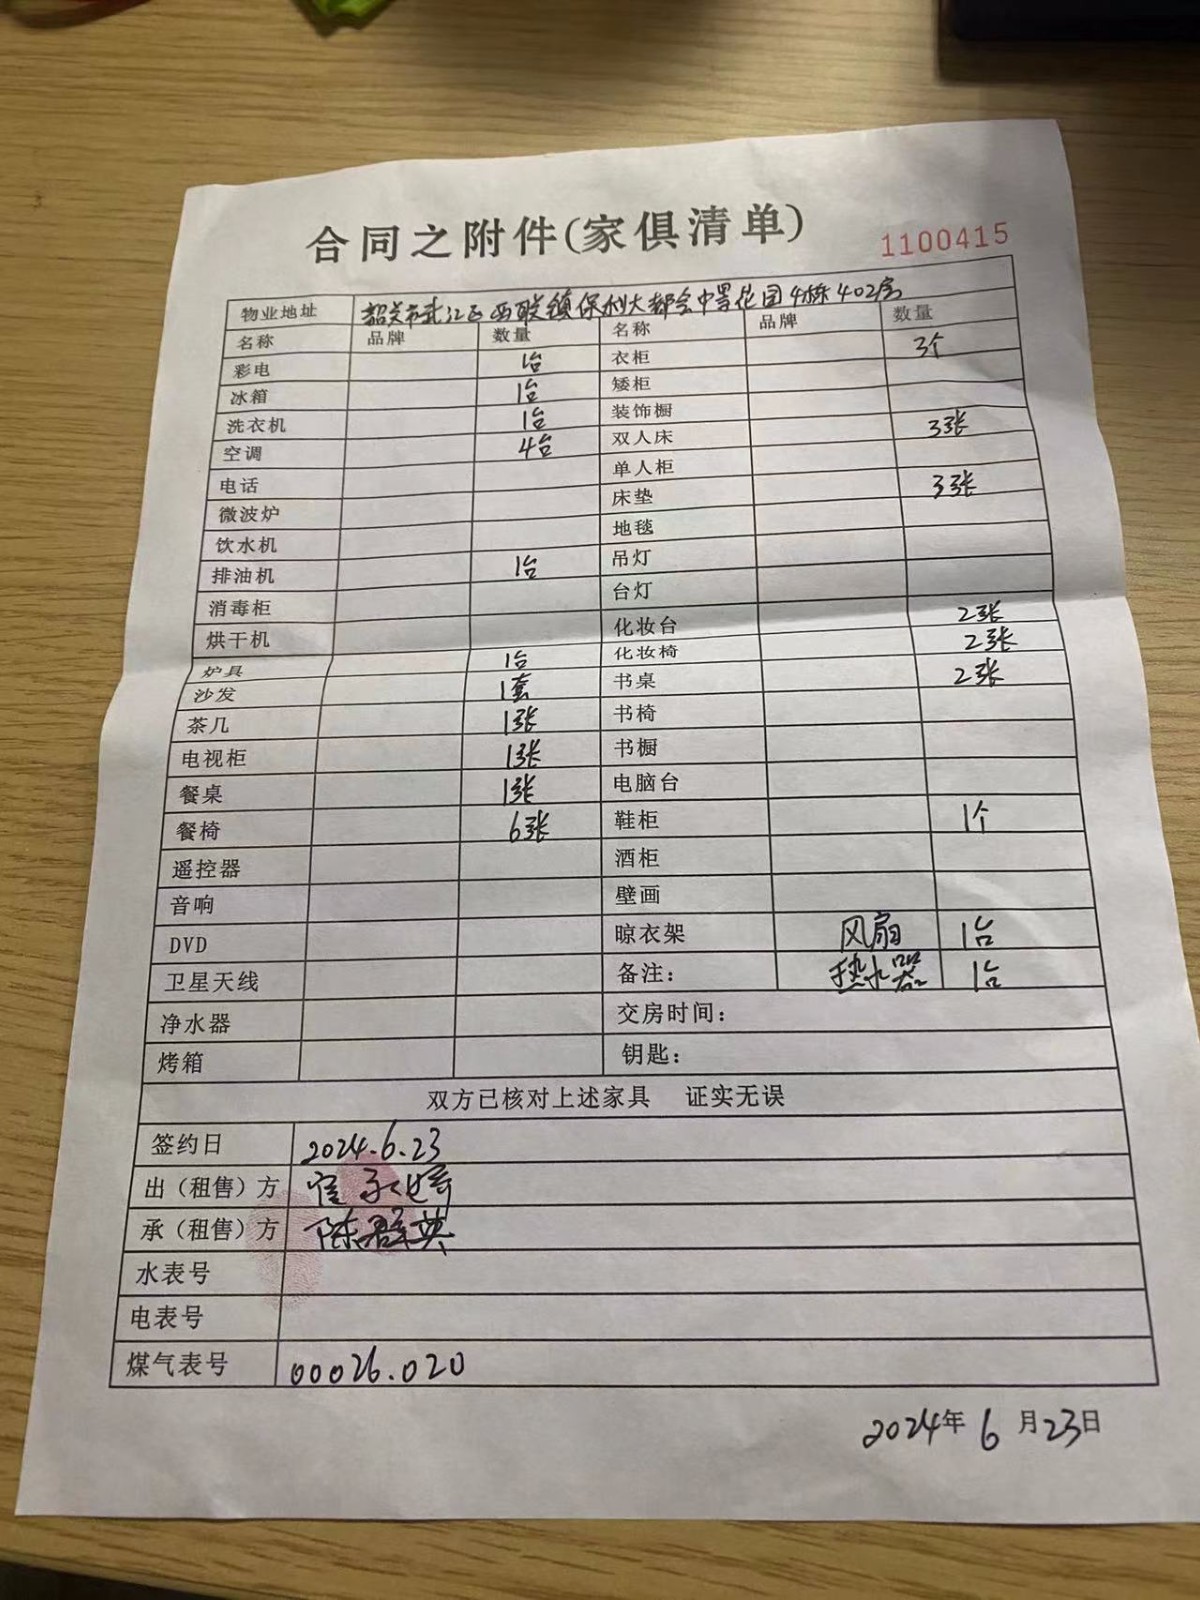 合同之附件(家俱清单)
1100415
物业地址 韶关市武江区西联镇保利大都会中景花园4栋402房
名称 品牌 数量 名称 品牌 数量
彩电 1台 衣柜 3个
冰箱 1台 矮柜
洗衣机 1台 装饰橱
空调 4台 双人床 3张
电话 单人柜
微波炉 床垫 3张
饮水机 地毯
排油机 1台 吊灯
消毒柜 台灯
烘干机 化妆台 2张
炉具 1台 化妆椅 2张
沙发 1套 书桌 2张
茶几 1张 书椅
电视柜 1张 书橱
餐桌 1张 电脑台
餐椅 6张 鞋柜 1个
遥控器 酒柜
音响 壁画
DVD 晾衣架 风扇 1台
卫星天线 备注: 热水器 1台
净水器 交房时间:
烤箱 钥匙:
双方已核对上述家具 证实无误
签约日 2024.6.23
出(租售)方
承(租售)方 陈群英
水表号
电表号
煤气表号 00026.020
2024年6月23日